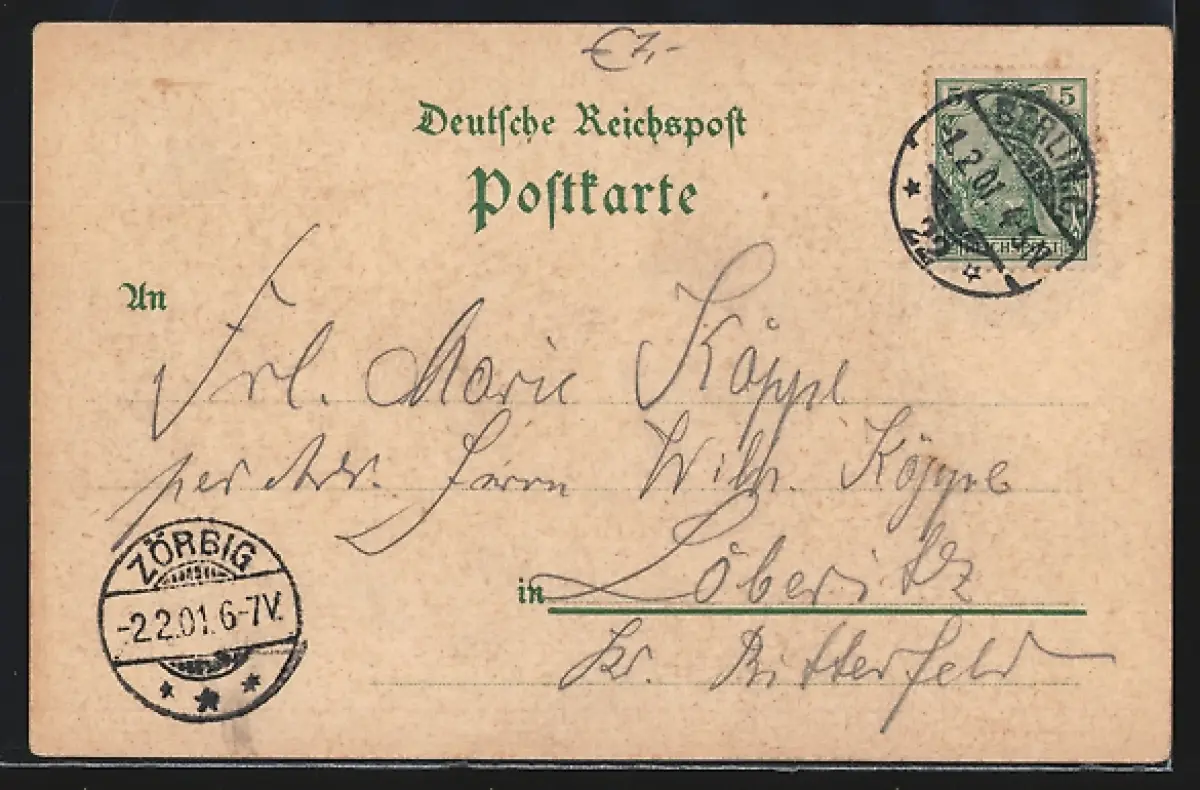 €7,-
Deutsche Reichspost
Postkarte
5 5
REICHSPOST
BERLIN, C.
1.2.01.
22
An
Frl. Marie Köppe
per Adr. Herrn Wilh. Köppe
in Löberitz
Kr. Bitterfeld
ZÖRBIG
-2.2.01.6-7V.